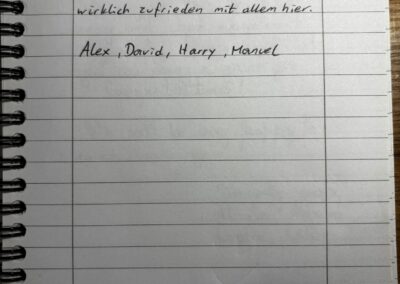 wirklich zufrieden mit allem hier.
Alex, David, Harry, Manuel